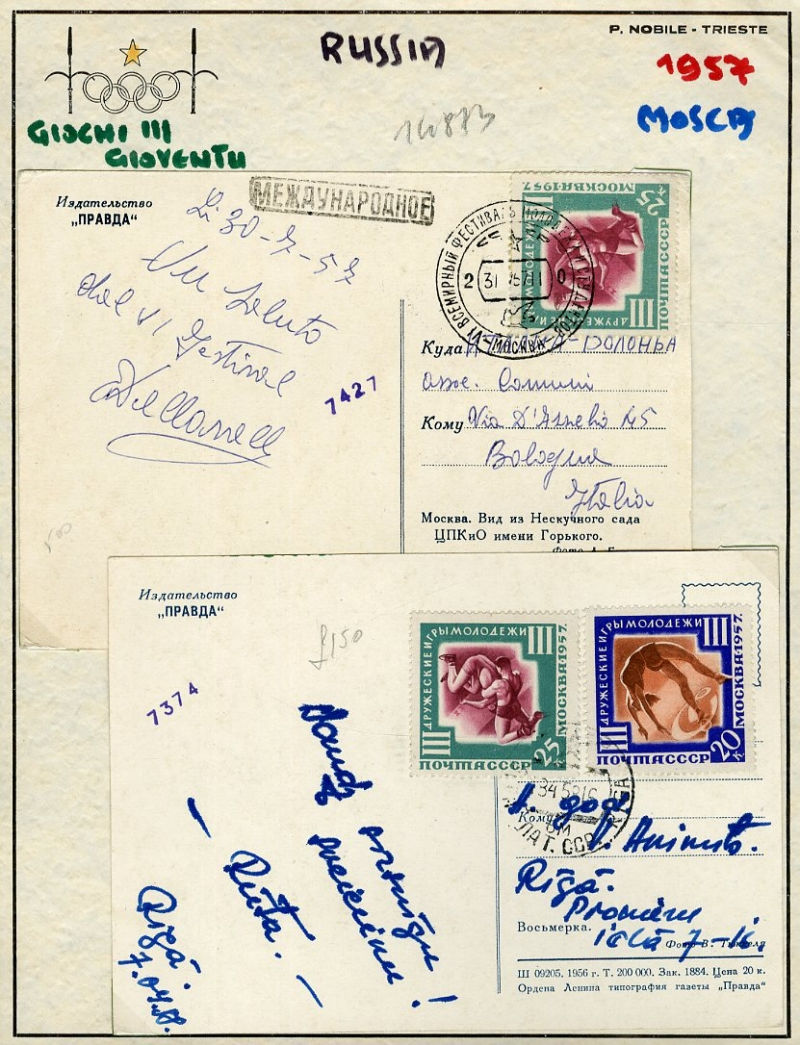 P. NOBILE - TRIESTE
RUSSIA
1957
MOSCA
GIOCHI III
GIOVENTU
Издательство
„ПРАВДА“
МЕЖДУНАРОДНОЕ
30-7-57
Un saluto
dal VI Festival
7427
III ДРУЖЕСКИЕ ИГРЫ МОЛОДЕЖИ III
МОСКВА·1957·
25 к
ПОЧТА СССР
VI ВСЕМИРНЫЙ ФЕСТИВАЛЬ МОЛОДЕЖИ И СТУДЕНТОВ
МОСКВА
Куда
Comuni
Кому Via D'Azeglio 45
Bologna
Italia
Москва. Вид из Нескучного сада
ЦПКиО имени Горького.
500
Издательство
„ПРАВДА“
£150
7374
III ДРУЖЕСКИЕ ИГРЫ МОЛОДЕЖИ III
МОСКВА·1957·
25 к
ПОЧТА СССР
III ДРУЖЕСКИЕ ИГРЫ МОЛОДЕЖИ III
МОСКВА·1957·
20 к
ПОЧТА СССР
ЛАТ. ССР
Daudz
sveicienu!
— Rūta. —
Rīgā.
Кому
A. god
Rīgā.
ielā 7-16.
Восьмерка.
Фото В.
Ш 09205. 1956 г. Т. 200 000. Зак. 1884. Цена 20 к.
Ордена Ленина типография газеты „Правда“